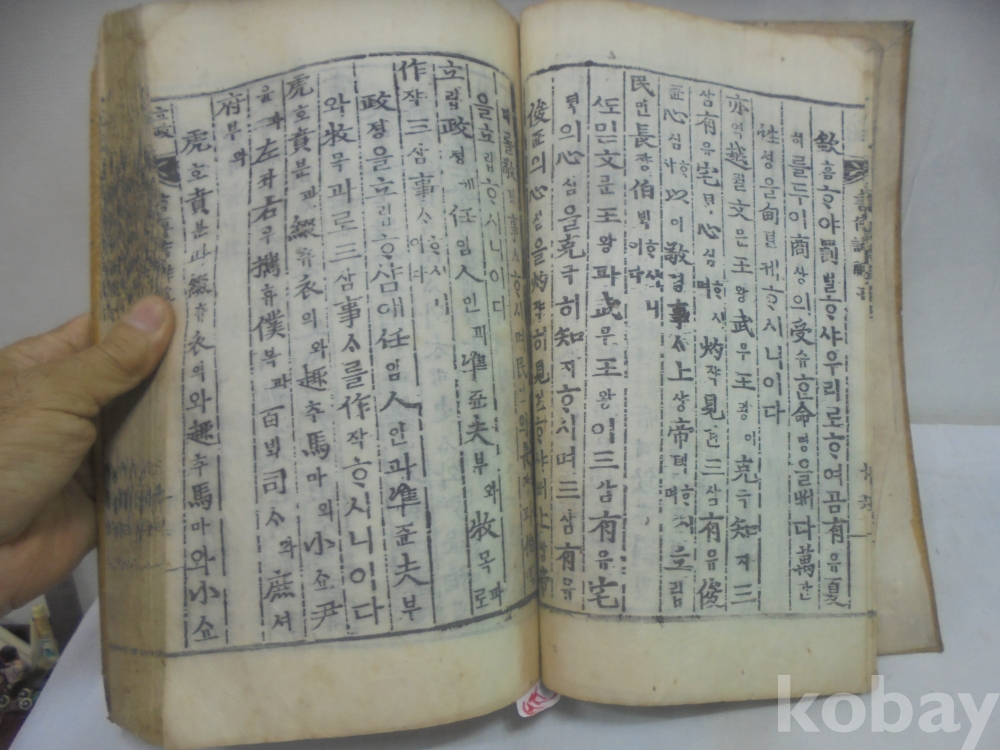 欽흠ᄒᆞ야罰벌ᄒᆞ샤우리로ᄒᆞ여곰有유夏
하를두어商상의受슈ᄒᆞᆫ命명을ᄡᅥ다萬만
姓셩을甸뎐케ᄒᆞ시니이다
亦역越월文문王왕武무王왕이克극知지三
삼有유宅ᄐᆡᆨ心심ᄒᆞ시며灼쟉見견三삼有유俊
쥰心심ᄒᆞ샤以이敬경事ᄉᆞ上상帝뎨ᄒᆞ시며立립
民민長쟝伯ᄇᆡᆨᄒᆞ시니이다
ᄯᅩ민文문王왕과武무王왕이三삼有유宅
ᄐᆡᆨ의心심을克극히知지ᄒᆞ시며三삼有유
俊쥰의心심을灼쟉히見견ᄒᆞ샤ᄡᅥ上
을立립ᄒᆞ시니이다
立립政졍에任임人인과準쥰夫부와牧목과로
作작三삼事ᄉᆞᄒᆞ시이다
政졍을立립ᄒᆞ샴애任임人인과準쥰夫부
와牧목과로三삼事ᄉᆞ를作작ᄒᆞ시니이다
虎호賁분과綴츄衣의와趣추馬마의小쇼尹
윤과左좌右우攜휴僕복과百ᄇᆡᆨ司ᄉᆞ와庶셔
府부와
虎호賁분과綴츄衣의와趣추馬마와小쇼
kobay